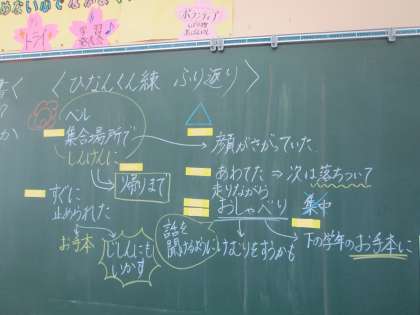 トライ
ボランティア
〈ひなんくん練 ふり返り〉
ベル
集合場所で
しんけんに
帰りまで
すぐに
止められた
お手本
じしんにも
いかす
顔がさがっていた
あわてた⇒次は落ちついて
走りながら
おしゃべり 集中
話を
聞けるようにけむりをすうかも
下の学年のお手本に